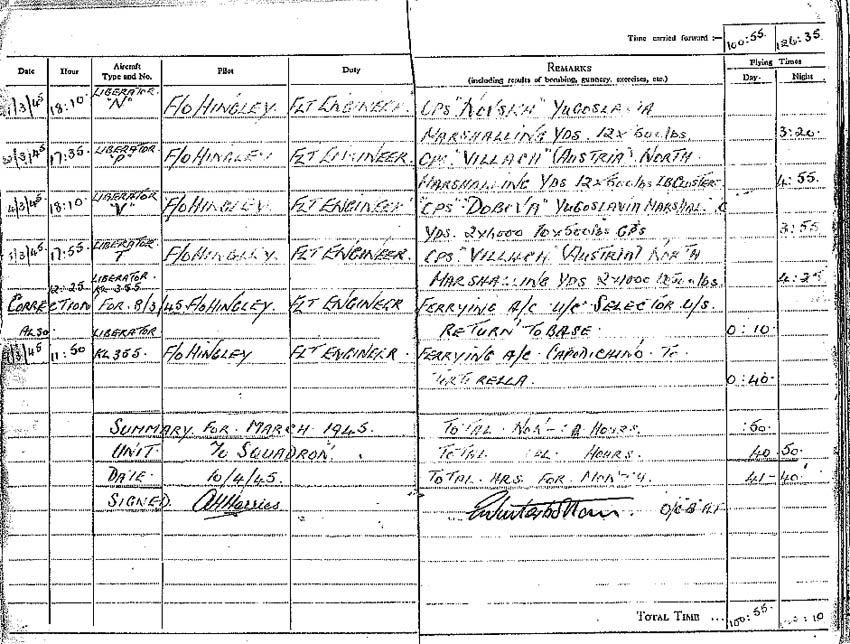 Time carried forward :— 100:55. 126:35.
Date Hour Aircraft Type and No. Pilot Duty REMARKS (including results of bombing, gunnery, exercises, etc.) Flying Times Day. Night.
1/3/45 18:10. LIBERATOR. "N" F/O HINGLEY. FLT ENGINEER. CPS YUGOSLAVIA
MARSHALLING YDS. 12 x 500 lbs. 3:20.
17:35. LIBERATOR. "P" F/O HINGLEY FLT ENGINEER. CPS. "VILLACH" (AUSTRIA). NORTH
MARSHALLING YDS 12x500 lbs CLUSTER 4:55.
4/3/45 18:10. LIBERATOR "V" F/O HINGLEY. FLT ENGINEER "CPS" YUGOSLAVIA MARSHAL.
YDS. 2x1,000 10x500 lbs GPS 3:55
17:55. LIBERATOR T F/O HINGLEY. FLT ENGINEER. CPS. "VILLACH" (AUSTRIA) NORTH
MARSHALLING YDS 2x1000 4:25
12:25. LIBERATOR. KL 355
CORRECTION FOR. 8/3/45. F/O HINGLEY. FLT ENGINEER FERRYING A/C. U/C. SELECTOR. U/S.
ALSO. LIBERATOR RETURN TO BASE. 0:10.
11:50 KL 355. F/O HINGLEY FLT ENGINEER. FERRYING A/C. CAPODICHINO. TO
TORTORELLA. 0:40.
SUMMARY. FOR. MARCH. 1945. TOTAL. NON- HOURS. :50.
UNIT. 70 SQUADRON. TOTAL HOURS. 40 50.
DATE. 10/4/45. TOTAL. HRS. FOR. MONTH. 41 - 40
SIGNED. AHHarries O/C
TOTAL TIME ... 100:55. :10